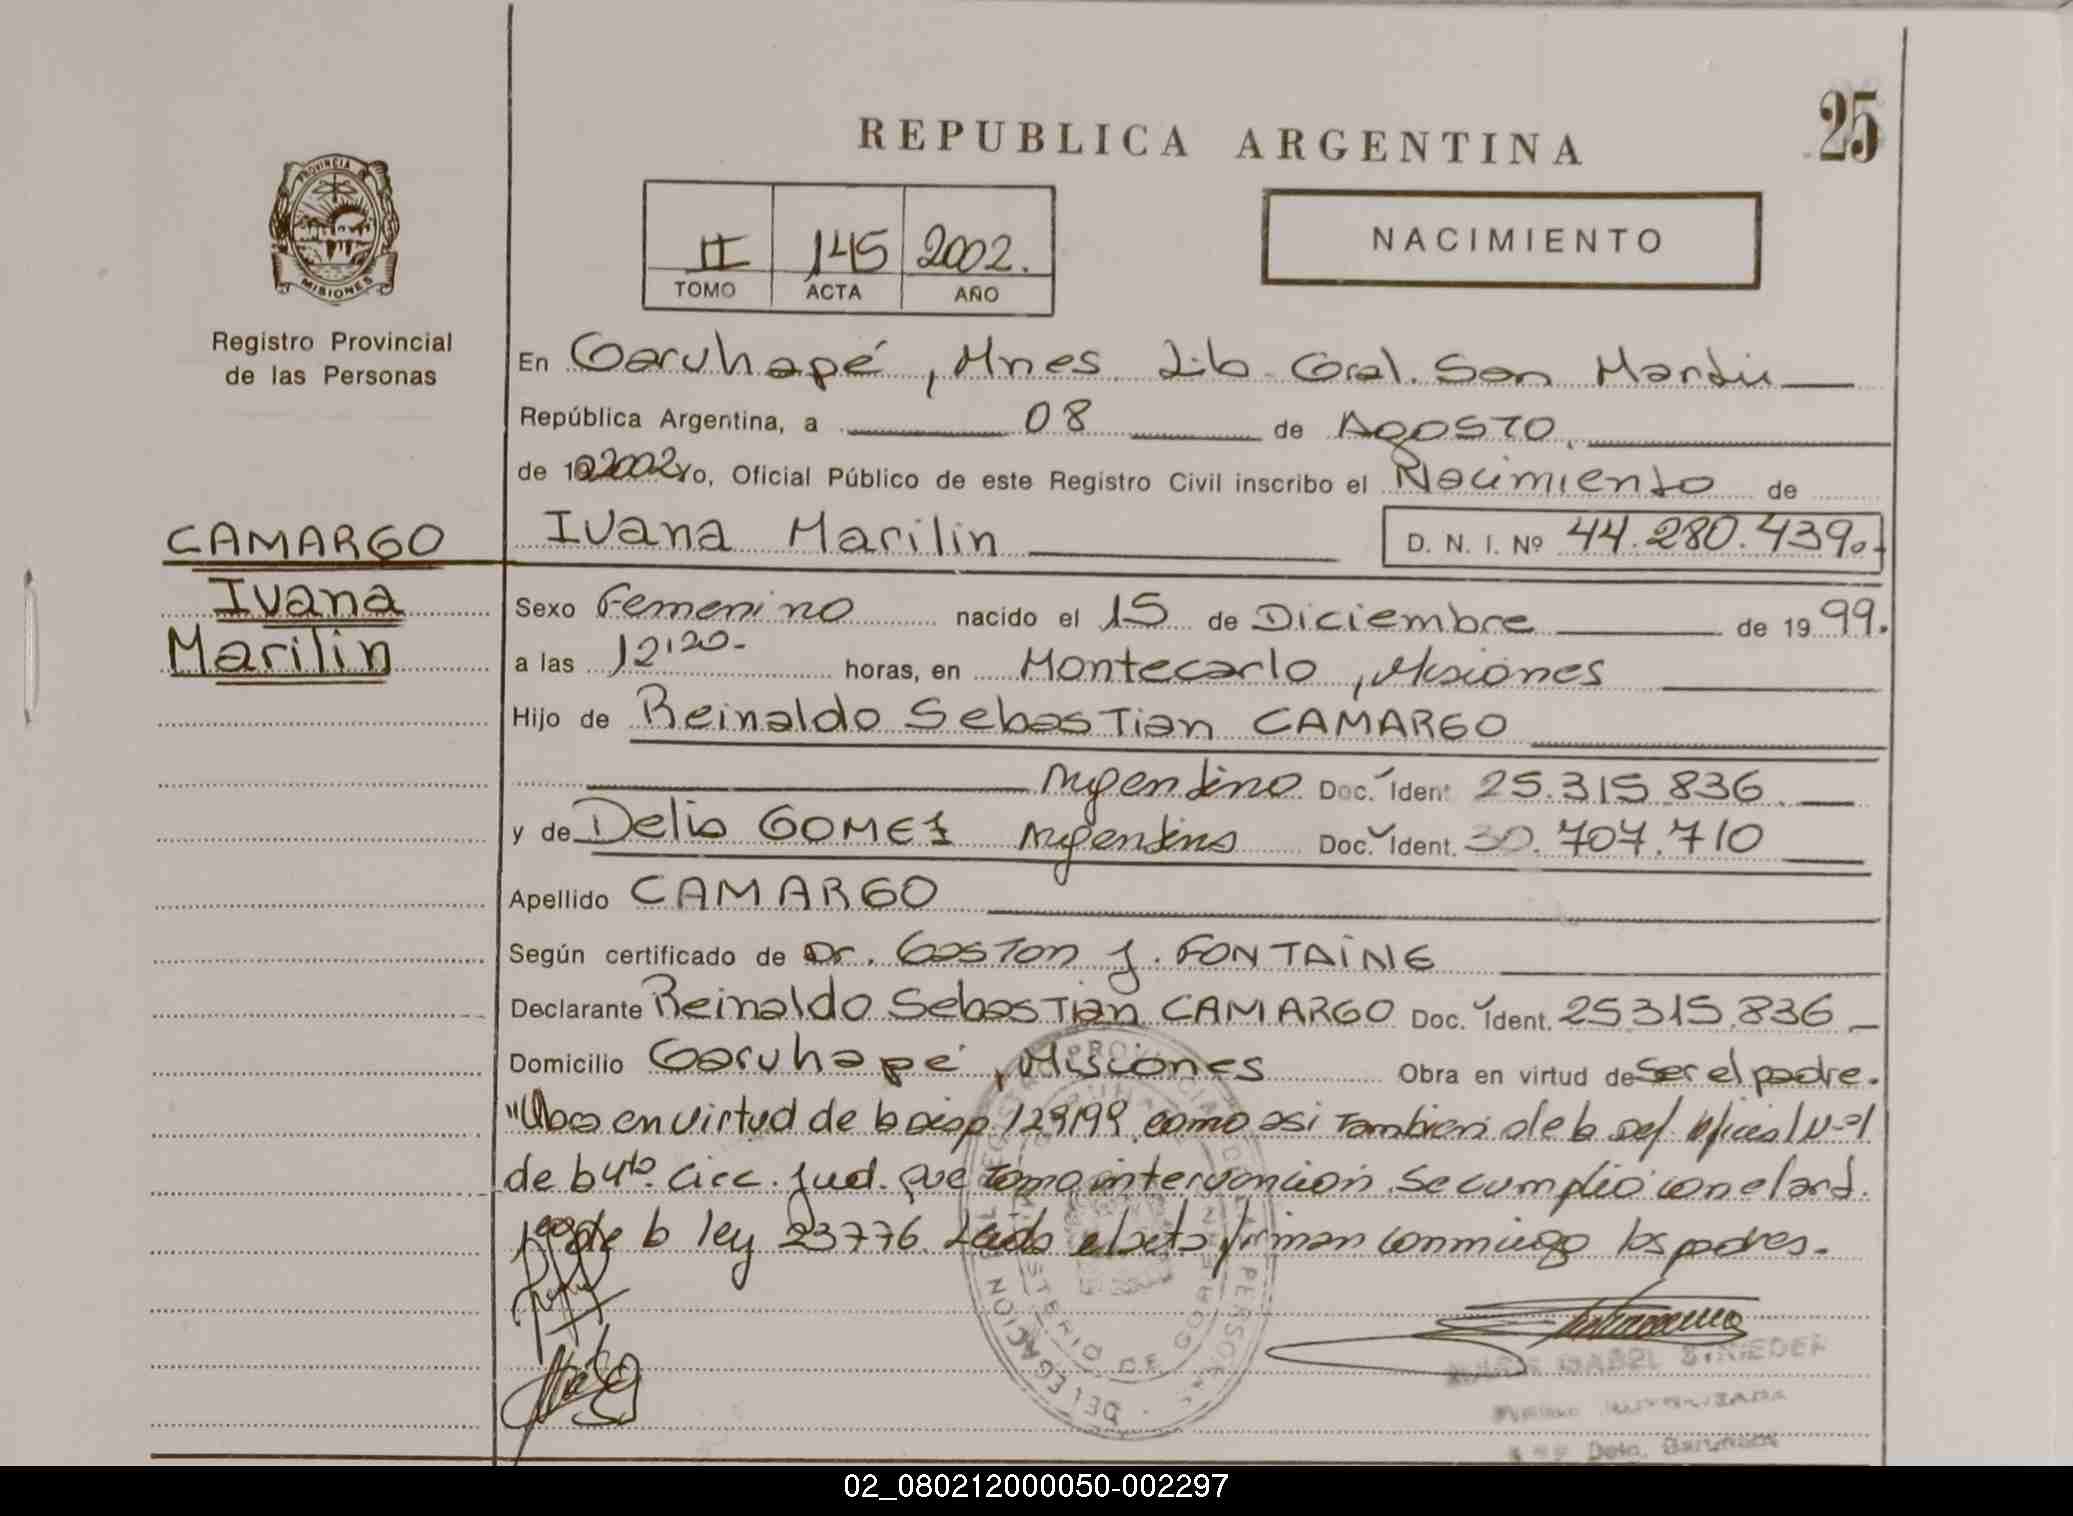 25
REPUBLICA ARGENTINA
PROVINCIA DE
MISIONES
Registro Provincial
de las Personas
II 145 2002.
TOMO ACTA AÑO
NACIMIENTO
En Garuhapé, Mnes. Lib. Gral. San Martín
República Argentina, a 08 de Agosto.
de 19 2002 Yo, Oficial Público de este Registro Civil inscribo el Nacimiento de
CAMARGO
Ivana
Marilin
Ivana Marilin D. N. I. Nº 44.280.439.-
Sexo Femenino nacido el 15 de Diciembre de 19 99.
a las 12,20- horas, en Montecarlo, Misiones
Hijo de Reinaldo Sebastian CAMARGO
Argentino Doc. Ident 25.315.836.
y de Delia GOMEZ Argentina Doc. Ident. 30.707.710
Apellido CAMARGO
Según certificado de Dr. Gaston J. FONTAINE
Declarante Reinaldo Sebastian CAMARGO Doc. Ident. 25315.836
Domicilio Garuhapé, Misiones Obra en virtud de Ser el padre.
en virtud de la disp 129/99 como asi tambien de la def. oficial Nº1
de la 4ta. circ. Jud. que tomo intervencion. Se cumplio con el ard.
de la ley 23776. Leida el acta firman conmigo los padres.
DELEGACION
MINISTERIO DE GOBIERNO
02_080212000050-002297